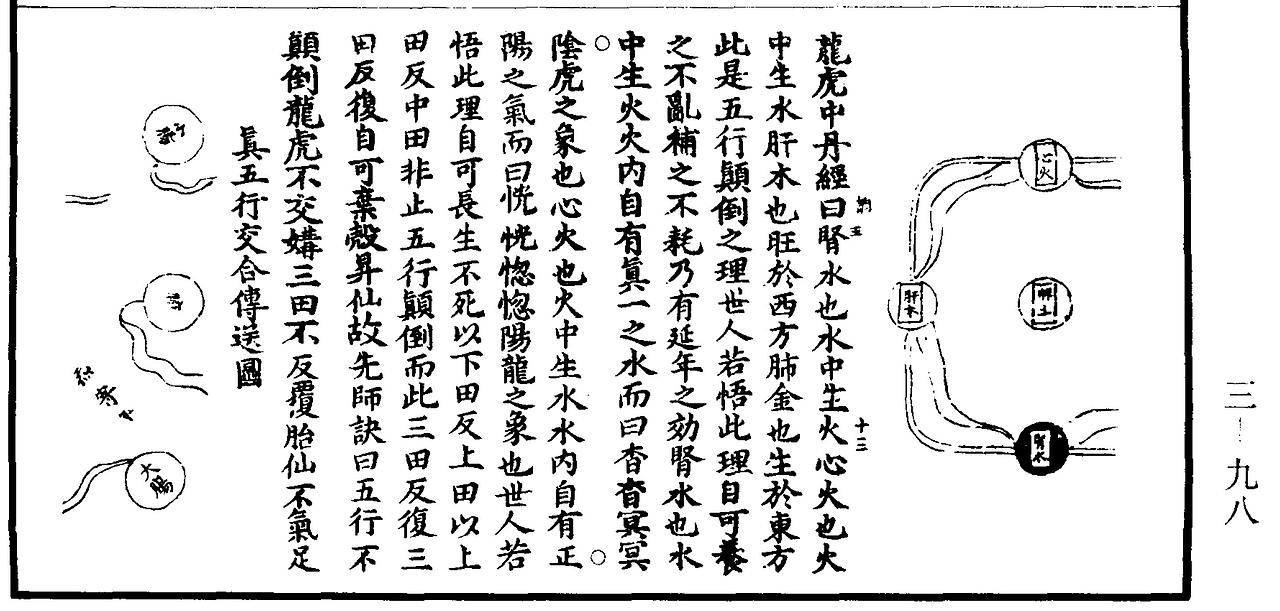 心火
肝木
脾土
腎水
龍虎中丹經曰腎水也水中生火心火也火
中生水肝木也旺於西方肺金也生於東方
此是五行顛倒之理世人若悟此理自可養
之不亂補之不耗乃有延年之効腎水也水
中生火火內自有眞一之水而曰杳杳冥冥
○陰虎之象也心火也火中生水水內自有正○
陽之氣而曰恍恍惚惚陽龍之象也世人若
悟此理自可長生不死以下田反上田以上
田反中田非止五行顛倒而此三田反復三
田反復自可棄殼昇仙故先師訣曰五行不
顛倒龍虎不交媾三田不反覆胎仙不氣足
眞五行交合傳送圖
大腸
十三
三-九八